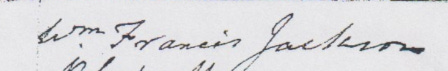 Wm Francis Jackson